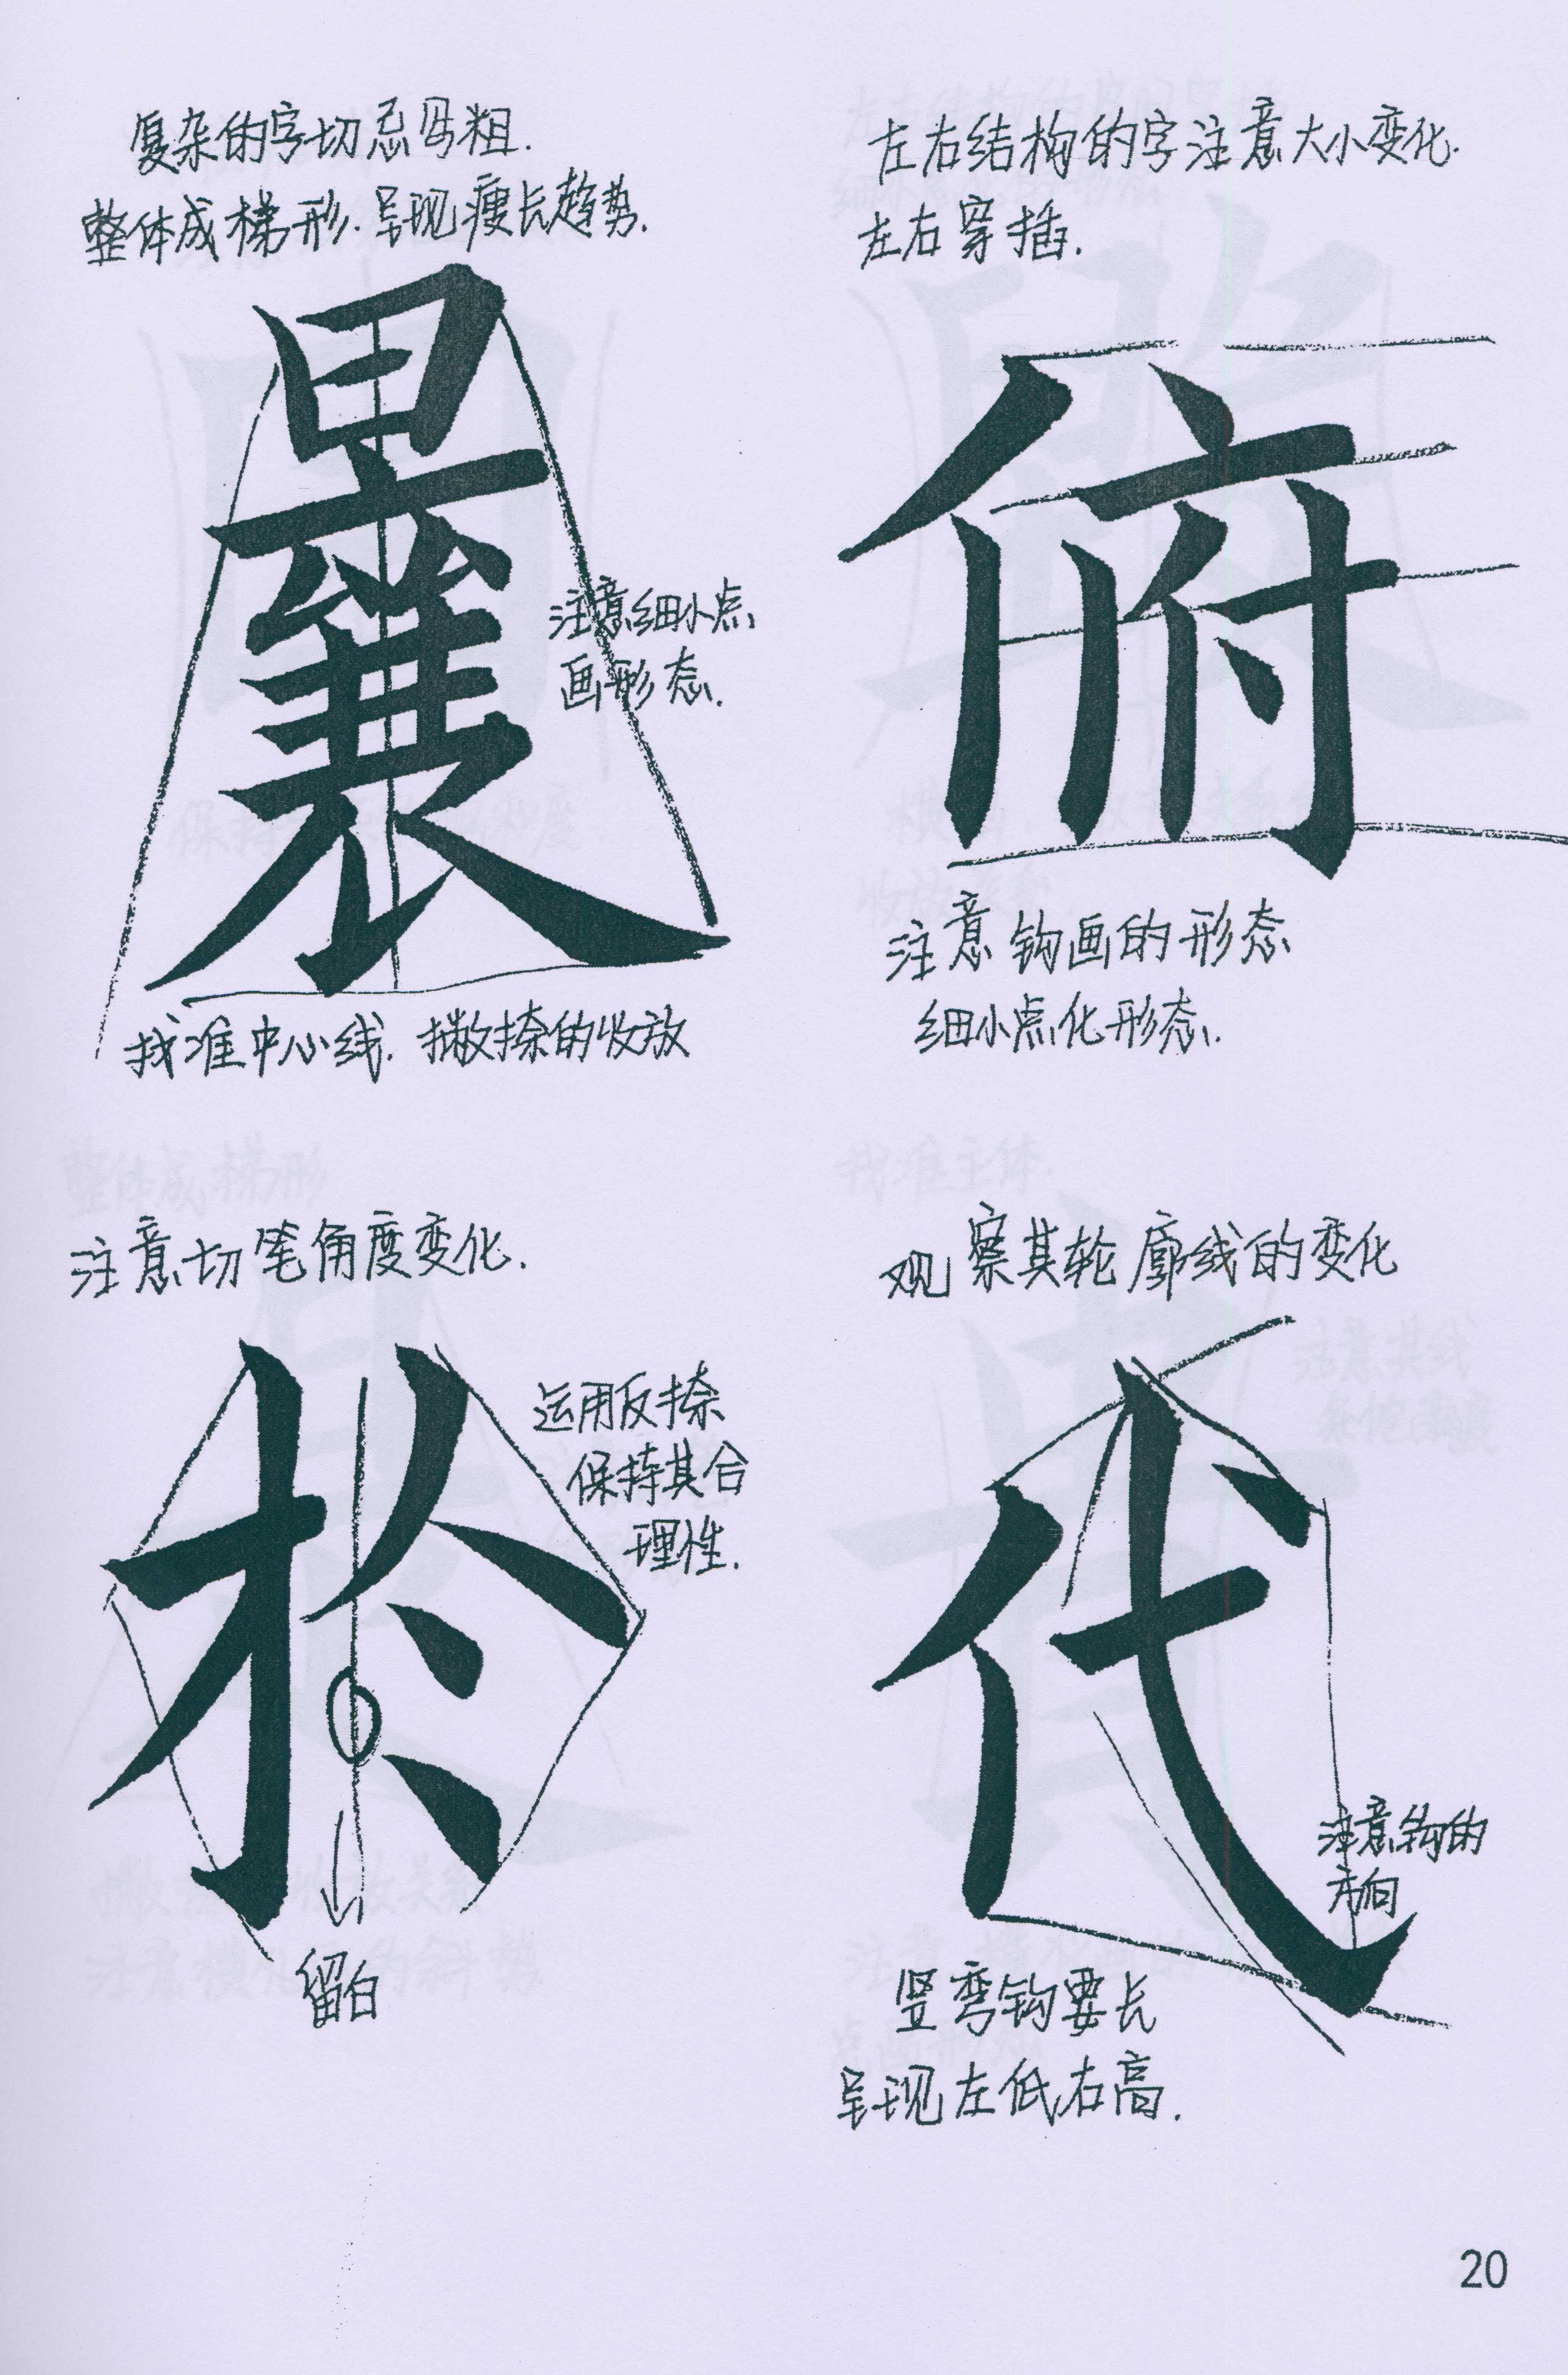 复杂的字切忌写粗.
整体成梯形.呈现瘦长趋势.
曩
注意细小点
画形态.
找准中心线.撇捺的收放
左右结构的字注意大小变化.
左右穿插.
俯
注意钩画的形态
细小点化形态.
注意切笔角度变化.
於
运用反捺
保持其合
理性.
留白
观察其轮廓线的变化
代
注意钩的
方向
竖弯钩要长
呈现左低右高.
20